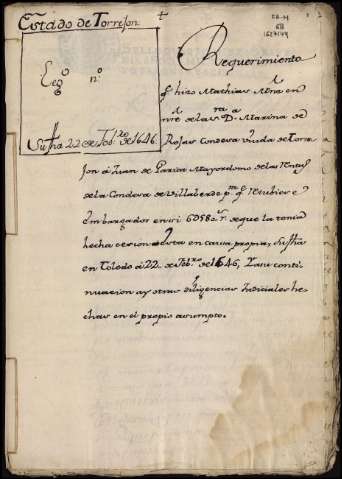 Estado de Torrejon
Leg.º n.º
Su fha 22 de Feb.ro de 1646.
Requerimiento
q.e hizo Mathias en
nre de la s.ra D.a Mariana de
Rojas Condesa viuda de Torre
jon á Juan de Mayordomo de las Rentas
de la Condesa de Villaverde p.ra q.e tubiere
embargados en si 6058 r.s de que la tenia
hecha cesion dota en causa propia, su fha
en Toledo á 22 de Feb.ro de 1646, y a su conti
nuacion ay otras diligencias Judiciales he
chas en el propio asumpto.